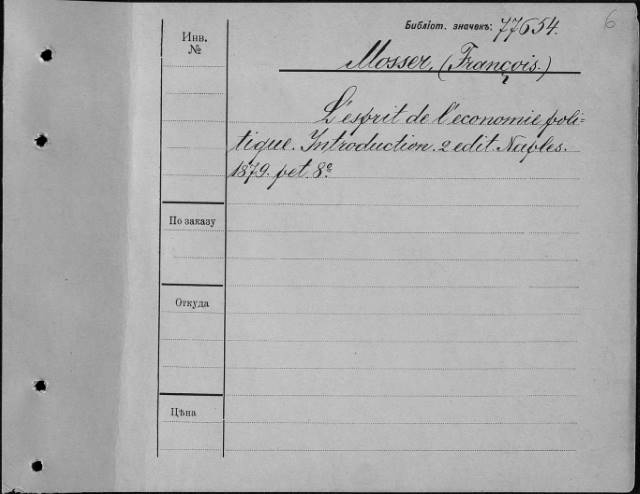 6
Библіот. значекъ: 77654.
Инв.
№
Mosser, (François.)
L'esprit de l'economie poli=
tique. Introduction. 2 edit. Naples.
1879. pet. 8º
По заказу
Откуда
Цѣна